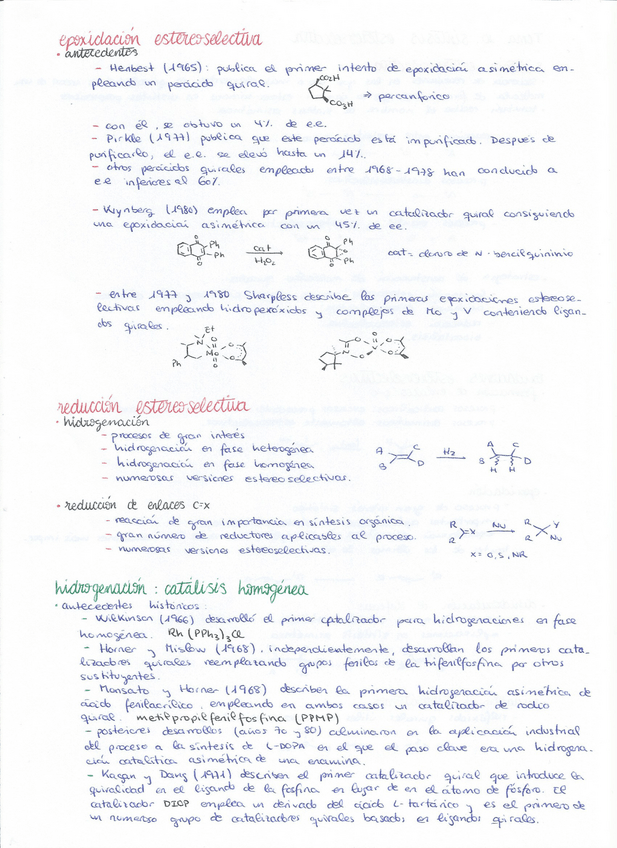 epoxidación estereoselectiva
• antecedentes
- Henbest (1965): publica el primer intento de epoxidación asimétrica em-
pleando un perácido quiral.
CO2H
CO3H
⇒ percanfórico
- con él, se obtuvo un 4% de e.e.
- Pirkle (1977) publica que este perácido está impurificado. Después de
purificarlo, el e.e. se elevó hasta un 14%.
- otros perácidos quirales empleado entre 1968-1978 han conducido a
ee inferiores al 60%.
- Wynberg (1980) emplea por primera vez un catalizador quiral consiguiendo
una epoxidación asimétrica con un 45% de ee.
O Ph Ph O
cat
H2O2
O Ph O Ph O
cat = cloruro de N-bencilquininio
- entre 1977 y 1980 Sharpless describe las primeras epoxidaciones estereose-
lectivas empleando hidroperóxidos y complejos de Mo y V conteniendo ligan-
dos quirales.
Et
N O O
Mo
Ph O O
O O
N O V O
reducción estereoselectiva
• hidrogenación
- procesos de gran interés
- hidrogenación en fase heterogénea
- hidrogenación en fase homogénea
- numerosas versiones estereoselectivas.
A C B D
H2
A C B D H H
• reducción de enlaces C=X
- reacción de gran importancia en síntesis orgánica.
- gran número de reductores aplicables al proceso.
- numerosas versiones estereoselectivas.
R R X
Nu
R Y R Nu
X = O, S, NR
hidrogenación: catálisis homogénea
• antecedentes históricos:
- Wilkinson (1966) desarrolló el primer catalizador para hidrogenaciones en fase
homogénea. Rh(PPh3)3Cl
- Horner y Mislow (1968), independientemente, desarrollan los primeros cata-
lizadores quirales reemplazando grupos fenilos de la trifenilfosfina por otros
sustituyentes.
- Monsato y Horner (1968) describen la primera hidrogenación asimétrica de
ácido fenilacrílico, empleando en ambos casos un catalizador de rodio
quiral. metilpropilfenilfosfina (PPMP)
- posteriores desarrollos (años 70 y 80) culminaron en la aplicación industrial
del proceso a la síntesis de L-DOPA en el que el paso clave era una hidrogena-
ción catalítica asimétrica de una enamina.
- Kagan y Dang (1971) describen el primer catalizador quiral que introduce la
quiralidad en el ligando de la fosfina en lugar de en el átomo de fósforo. El
catalizador DIOP emplea un derivado del ácido L-tartárico y es el primero de
un numeroso grupo de catalizadores quirales basados en ligandos quirales.